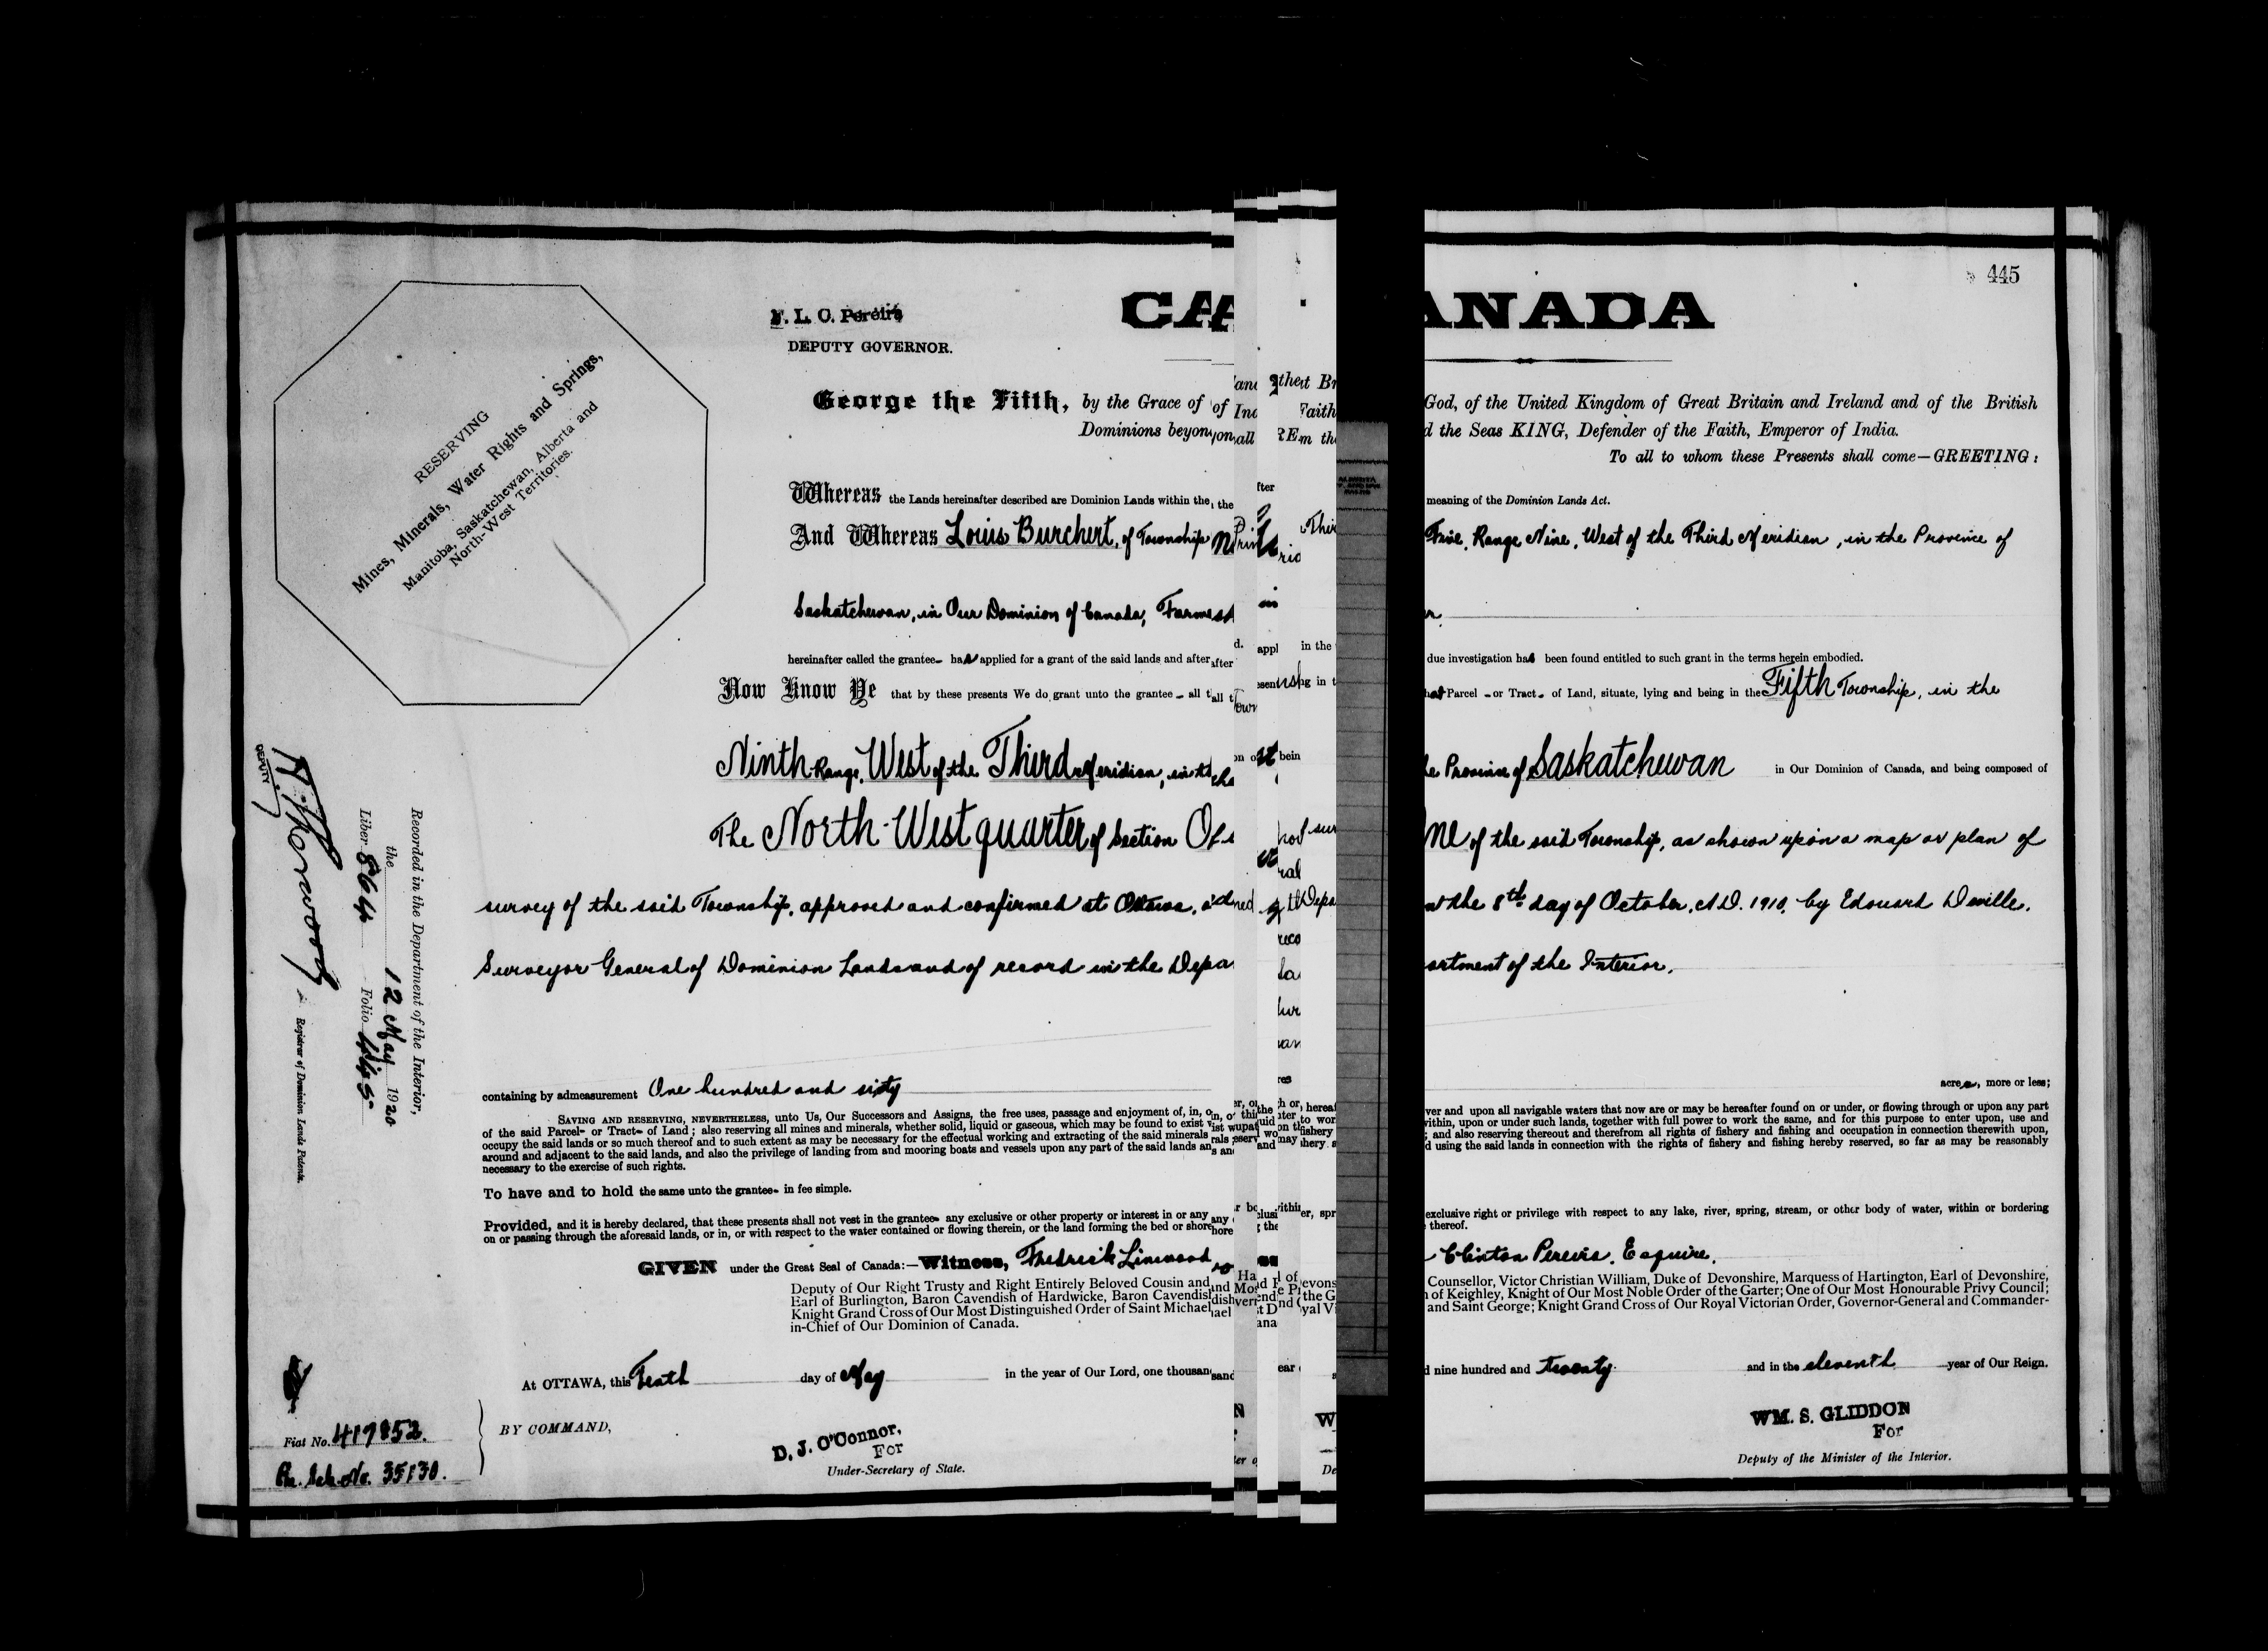 445
CA
ANADA
F. L. C. Pereira
DEPUTY GOVERNOR.
George the Fifth, by the Grace of God, of the United Kingdom of Great Britain and Ireland and of the British
Dominions beyond the Seas KING, Defender of the Faith, Emperor of India.
To all to whom these Presents shall come—GREETING:
RESERVING
Mines, Minerals, Water Rights and Springs,
Manitoba, Saskatchewan, Alberta and
North-West Territories.
Whereas the Lands hereinafter described are Dominion Lands within the meaning of the Dominion Lands Act.
And Whereas Louis Burchert, of Township Five, Range Nine, West of the Third Meridian, in the Province of
Saskatchewan, in Our Dominion of Canada, Farmer,
hereinafter called the grantee- has applied for a grant of the said lands and after due investigation has been found entitled to such grant in the terms herein embodied.
Now Know Ye that by these presents We do grant unto the grantee - all that Parcel - or Tract - of Land, situate, lying and being in the Fifth Township, in the
Ninth Range, West of the Third Meridian, in the Province of Saskatchewan in Our Dominion of Canada, and being composed of
The North-West quarter of Section One of the said Township, as shown upon a map or plan of
survey of the said Township, approved and confirmed at Ottawa, on the 8th day of October, A.D. 1910, by Edouard Deville,
Surveyor General of Dominion Lands and of record in the Department of the Interior.
containing by admeasurement One hundred and sixty acres, more or less;
SAVING AND RESERVING, NEVERTHELESS, unto Us, Our Successors and Assigns, the free uses, passage and enjoyment of, in, over and upon all navigable waters that now are or may be hereafter found on or under, or flowing through or upon any part
of the said Parcel- or Tract- of Land; also reserving all mines and minerals, whether solid, liquid or gaseous, which may be found to exist within, upon or under such lands, together with full power to work the same, and for this purpose to enter upon, use and
occupy the said lands or so much thereof and to such extent as may be necessary for the effectual working and extracting of the said minerals; and also reserving thereout and therefrom all rights of fishery and fishing and occupation in connection therewith upon,
around and adjacent to the said lands, and also the privilege of landing from and mooring boats and vessels upon any part of the said lands and using the said lands in connection with the rights of fishery and fishing hereby reserved, so far as may be reasonably
necessary to the exercise of such rights.
To have and to hold the same unto the grantee- in fee simple.
Provided, and it is hereby declared, that these presents shall not vest in the grantee- any exclusive or other property or interest in or any exclusive right or privilege with respect to any lake, river, spring, stream, or other body of water, within or bordering
on or passing through the aforesaid lands, or in, or with respect to the water contained or flowing therein, or the land forming the bed or shore thereof.
GIVEN under the Great Seal of Canada:—Witness, Fredrick Linwood Clinton Pereira, Esquire,
Deputy of Our Right Trusty and Right Entirely Beloved Cousin and Counsellor, Victor Christian William, Duke of Devonshire, Marquess of Hartington, Earl of Devonshire,
Earl of Burlington, Baron Cavendish of Hardwicke, Baron Cavendish of Keighley, Knight of Our Most Noble Order of the Garter; One of Our Most Honourable Privy Council;
Knight Grand Cross of Our Most Distinguished Order of Saint Michael and Saint George; Knight Grand Cross of Our Royal Victorian Order, Governor-General and Commander-
in-Chief of Our Dominion of Canada.
At OTTAWA, this Tenth day of May in the year of Our Lord, one thousand nine hundred and twenty and in the eleventh year of Our Reign.
BY COMMAND,
D. J. O'Connor,
For
Under-Secretary of State.
WM. S. GLIDDON
For
Deputy of the Minister of the Interior.
Recorded in the Department of the Interior,
the 12 May 1920
Liber 864 Folio 445
DEPUTY
Registrar of Dominion Lands Patents.
Fiat No. 417852.